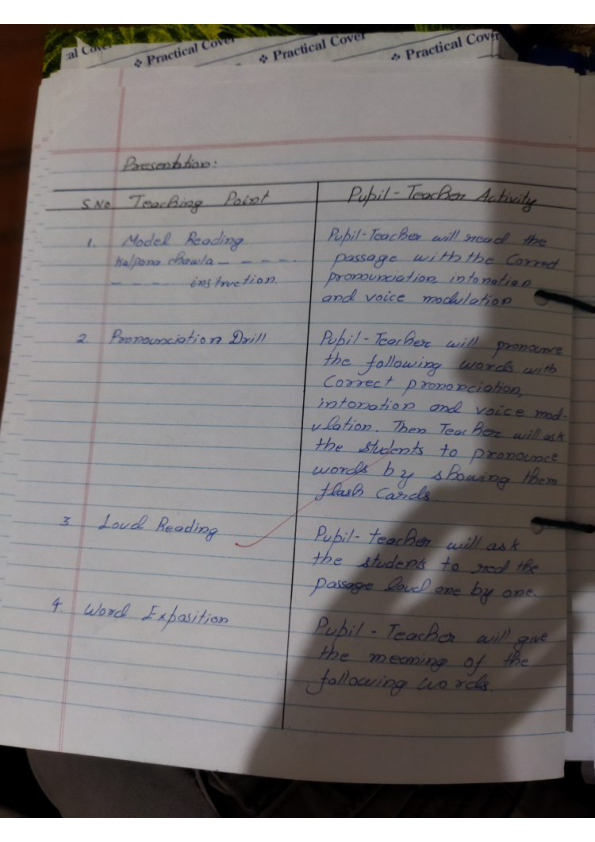 al Cover
❖ Practical Cover
❖ Practical Cover
❖ Practical Cover
Presentation:
S.No. Teaching Point
Pupil-Teacher Activity
1. Model Reading
Kalpana chawla - - - -
- - - - instruction.
Pupil-Teacher will read the
passage with the Correct
pronounciation, intonation
and voice modulation
2. Pronounciation Drill
Pupil-Teacher will pronounce
the following words with
Correct pronounciation,
intonation and voice mod-
ulation. Then Teacher will ask
the students to pronounce
words by showing them
flash Cards.
3. Loud Reading
Pupil-teacher will ask
the students to red the
passage loud one by one.
4. Word Exposition
Pupil-Teacher will give
the meaning of the
following words.